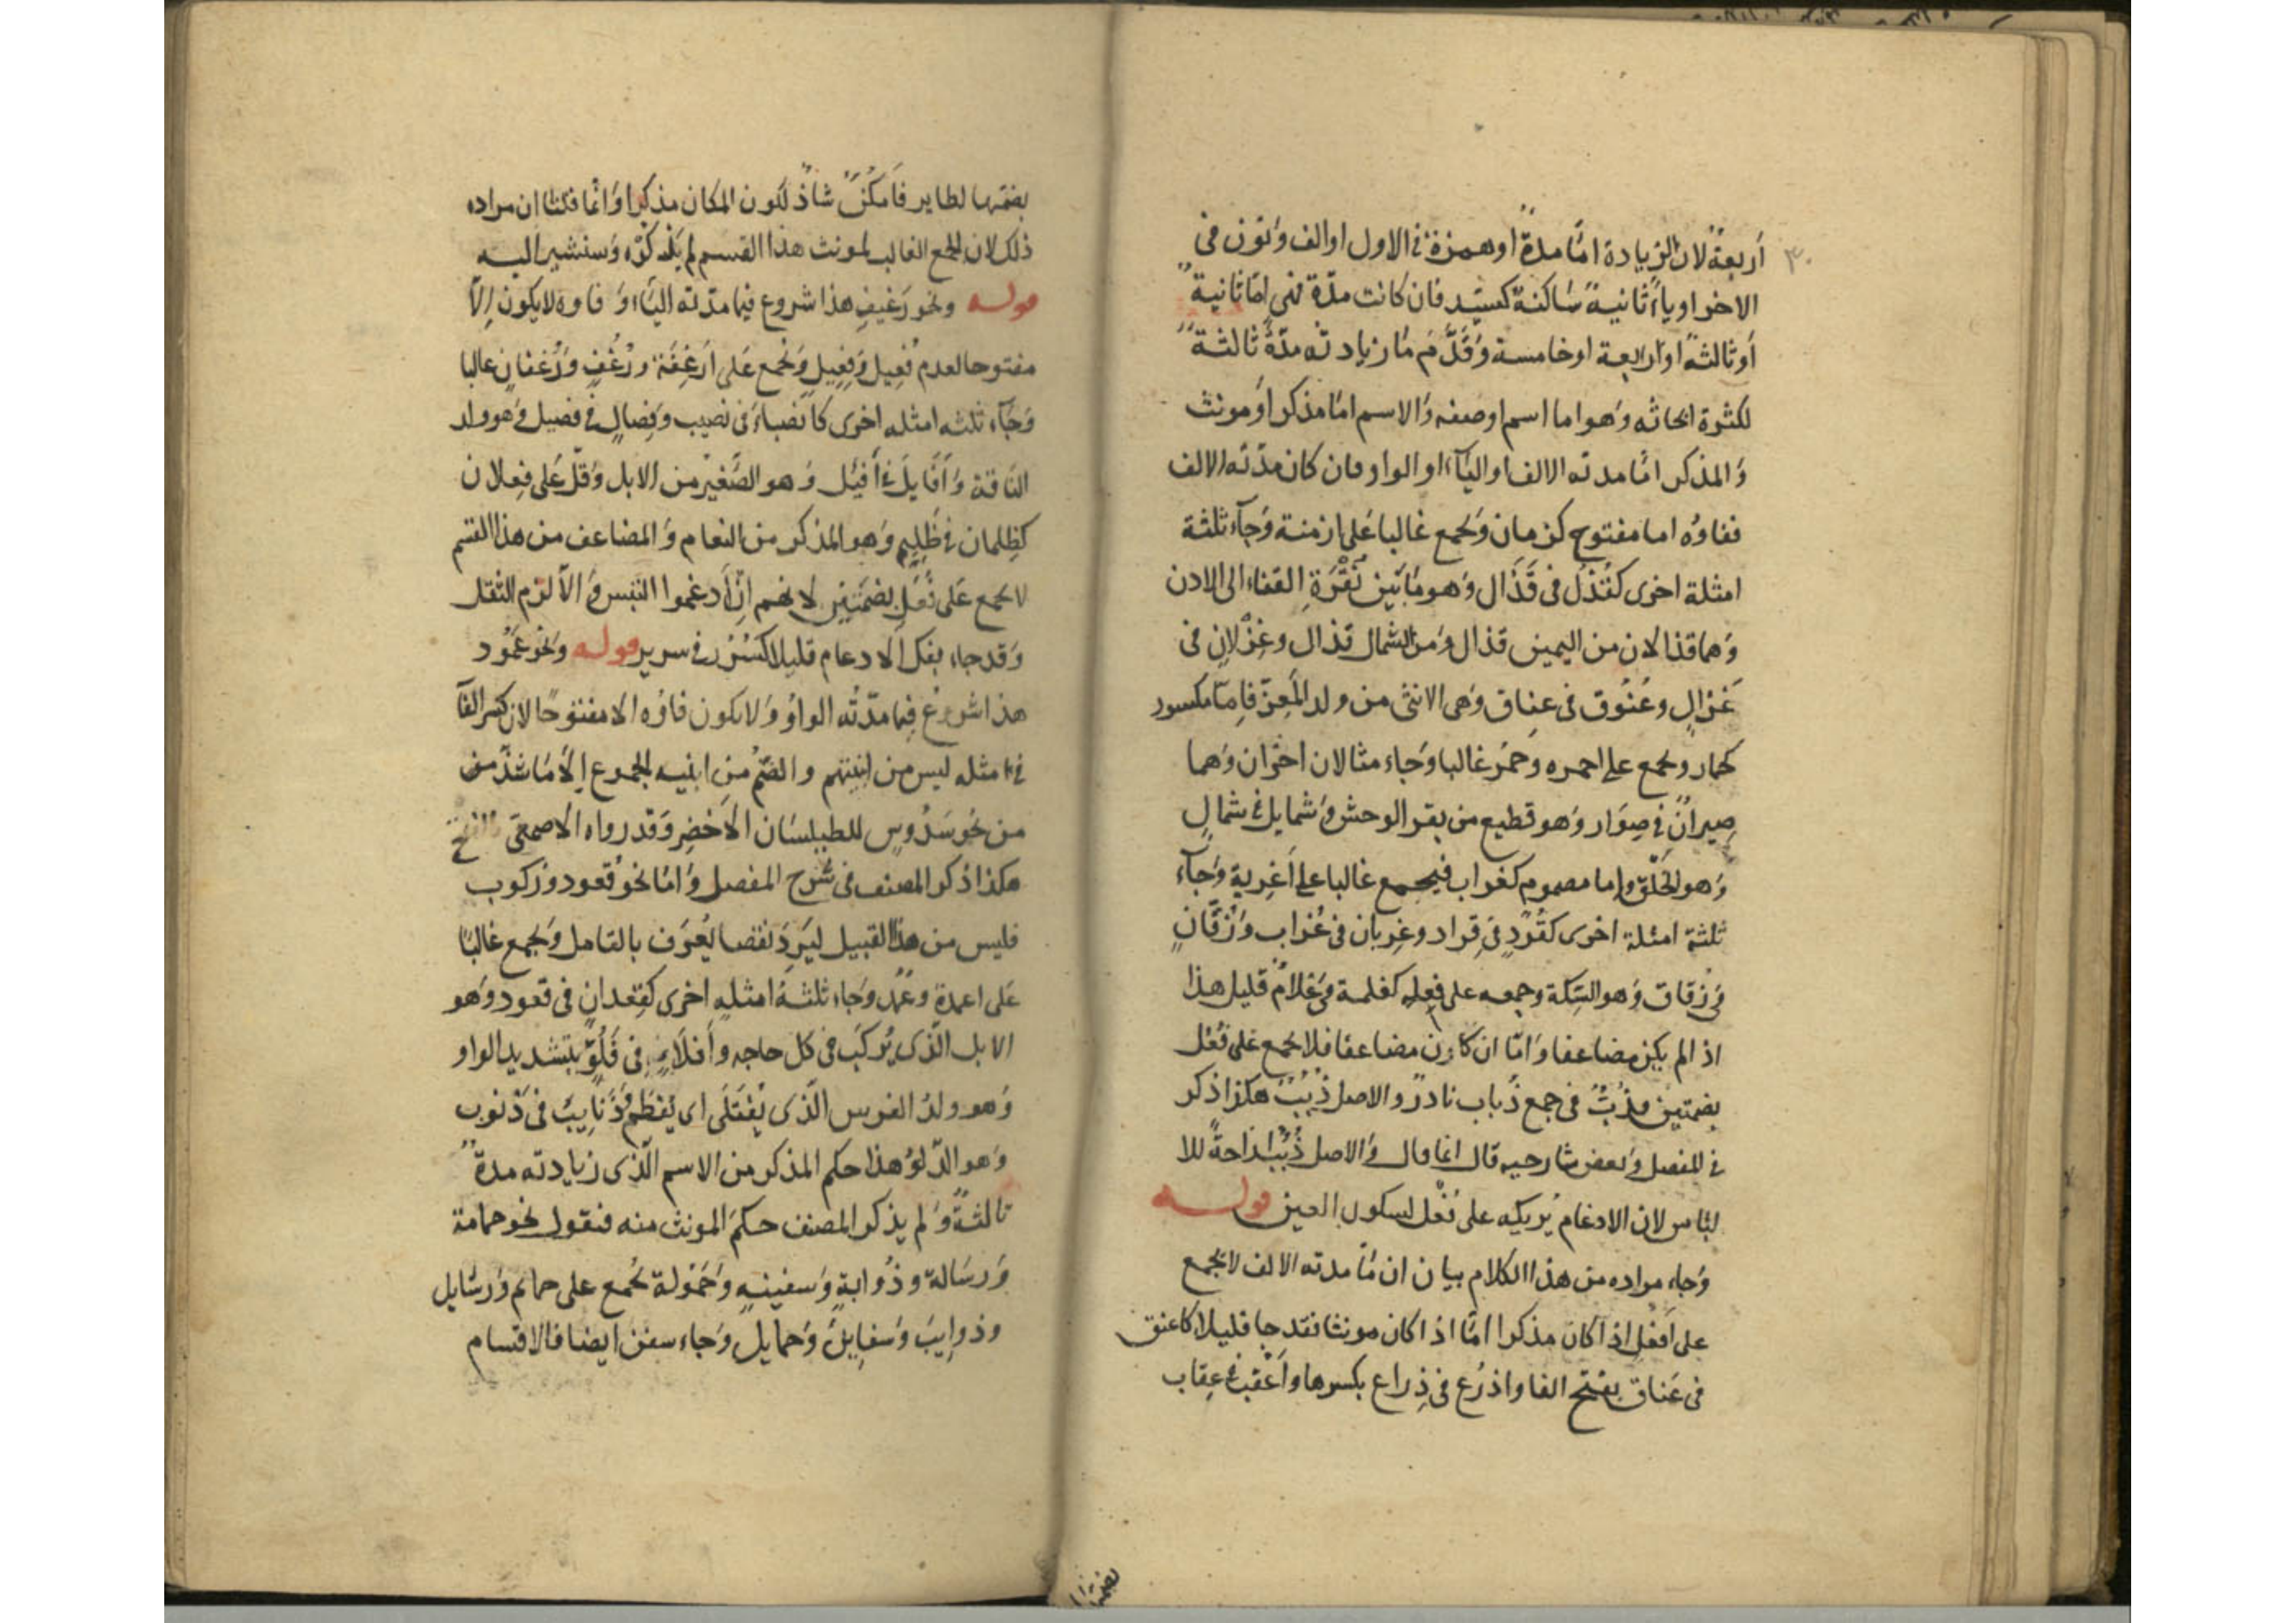 أربعة لان الزيادة اما مدة او همزة في الاول او الف ونون في
الاخر او ياء ثانية ساكنة كسيد فان كانت مدة فهي اما ثانية
أو ثالثة او رابعة او خامسة وقدم ما زيادته مدة ثالثة
لكثرة ابحاثه وهو اما اسم او صفه والاسم اما مذكر او مونث
والمذكر اما مدته الالف او الياء او الواو فان كان مدته الالف
ففاوه اما مفتوح كزمان ويجمع غالبا على ازمنة وجاء ثلثة
امثلة اخرى كقذل في قذال وهو ما بين نقرة القفاء الى الاذن
وهما قذالان من اليمين قذال ومن الشمال قذال وغزلان في
غزال وعنوق في عناق وهي الانثى من ولد المعز فاما مكسور
كحمار ويجمع على احمره وحمر غالبا وجاء مثالان اخران وهما
صيران في صوار وهو قطيع من بقر الوحش وشمايل في شمال
وهو الخلق واما مضموم كغراب فيجمع غالبا على أغربة وجاء
ثلثة امثلة اخرى كقرد في قراد وغربان في غراب وزقان
في زقاق وهو السكة وجمعه على فعله كغلمة في غلام قليل هذا
اذا لم يكن مضاعفا واما ان كان مضاعفا فلا يجمع على فعل
بضمتين وذب في جمع ذباب نادر والاصل ذبب هكذا ذكر
في المفصل وبعض شارحيه قال انما قال والاصل ذبب ازاحة للا
لباس لان الادغام يريكه على فعل لسكون العين قوله
وجاء مراده من هذا الكلام بيان ان ما مدته الالف لا يجمع
على أفعل اذا كان مذكرا اما اذا كان مونثا فقد جا قليلا كاعنق
في عناق بفتح الفا واذرع في ذراع بكسرها وأعقب في عقاب
بضمها
بضمها لطاير فأمكن شاذ لكون المكان مذكرا وانما قلنا ان مراده
ذلك لان الجمع الغالب لمونث هذا القسم لم يذكره وسنشير اليه
قوله ونحو رغيف هذا شروع فيما مدته الياء وفاوه لا يكون إلا
مفتوحا لعدم فعيل وفعيل ويجمع على أرغفة ورغف ورغفان غالبا
وجاء ثلثه امثله اخرى كأنصباء في نصيب وفصال في فصيل وهو ولد
الناقة وأفايل في أفيل وهو الصغير من الابل وقل على فعلان
كظلمان في ظليم وهو المذكر من النعام والمضاعف من هذا القسم
لا يجمع على فعل بضمتين لانهم إن أدغموا التبس والا لزم الثقل
وقد جاء بفك الادغام قليلا كسرر في سرير قوله ونحو عمود
هذا شروع فيما مدته الواو ولا يكون فاوه الا مفتوحا لان كسر الفا
في مثله ليس من ابنيتهم والضم من ابنيه الجموع إلا ما شذ منه
من نحو سدوس للطيلسان الأخضر وقد رواه الاصمعي بالفتح
هكذا ذكر المصنف في شرح المفصل واما نحو قعود وركوب
فليس من هذا القبيل ليرد نقضا يعرف بالتامل ويجمع غالبا
على اعمدة وعمد وجاء ثلثة امثله اخرى كقعدان في قعود وهو
الابل الذي يركب في كل حاجه وأفلاء في فلو بتشديد الواو
وهو ولد الفرس الذي يفتلى اى يفطم وذنايب في ذنوب
وهو الدلو هذا حكم المذكر من الاسم الذي زيادته مدة
ثالثة ولم يذكر المصنف حكم المونث منه فنقول نحو حمامة
ورسالة وذوابة وسفينه وحمولة تجمع على حمايم ورسايل
وذوايب وسفاين وحمايل وجاء سفن ايضا فالاقسام